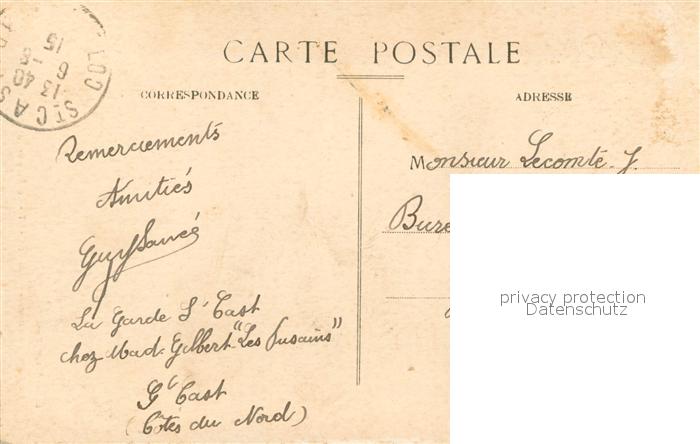 CARTE POSTALE
CORRESPONDANCE
ADRESSE
Remerciements
Amitiés
Guy
La Garde St Cast
chez Mad. Gilbert "Les Fusains"
St Cast
(Côtes du Nord)
Monsieur Lecomte J.
Bure
privacy protection
Datenschutz
ST CAS
13 40
6 - 8
15
COT DU